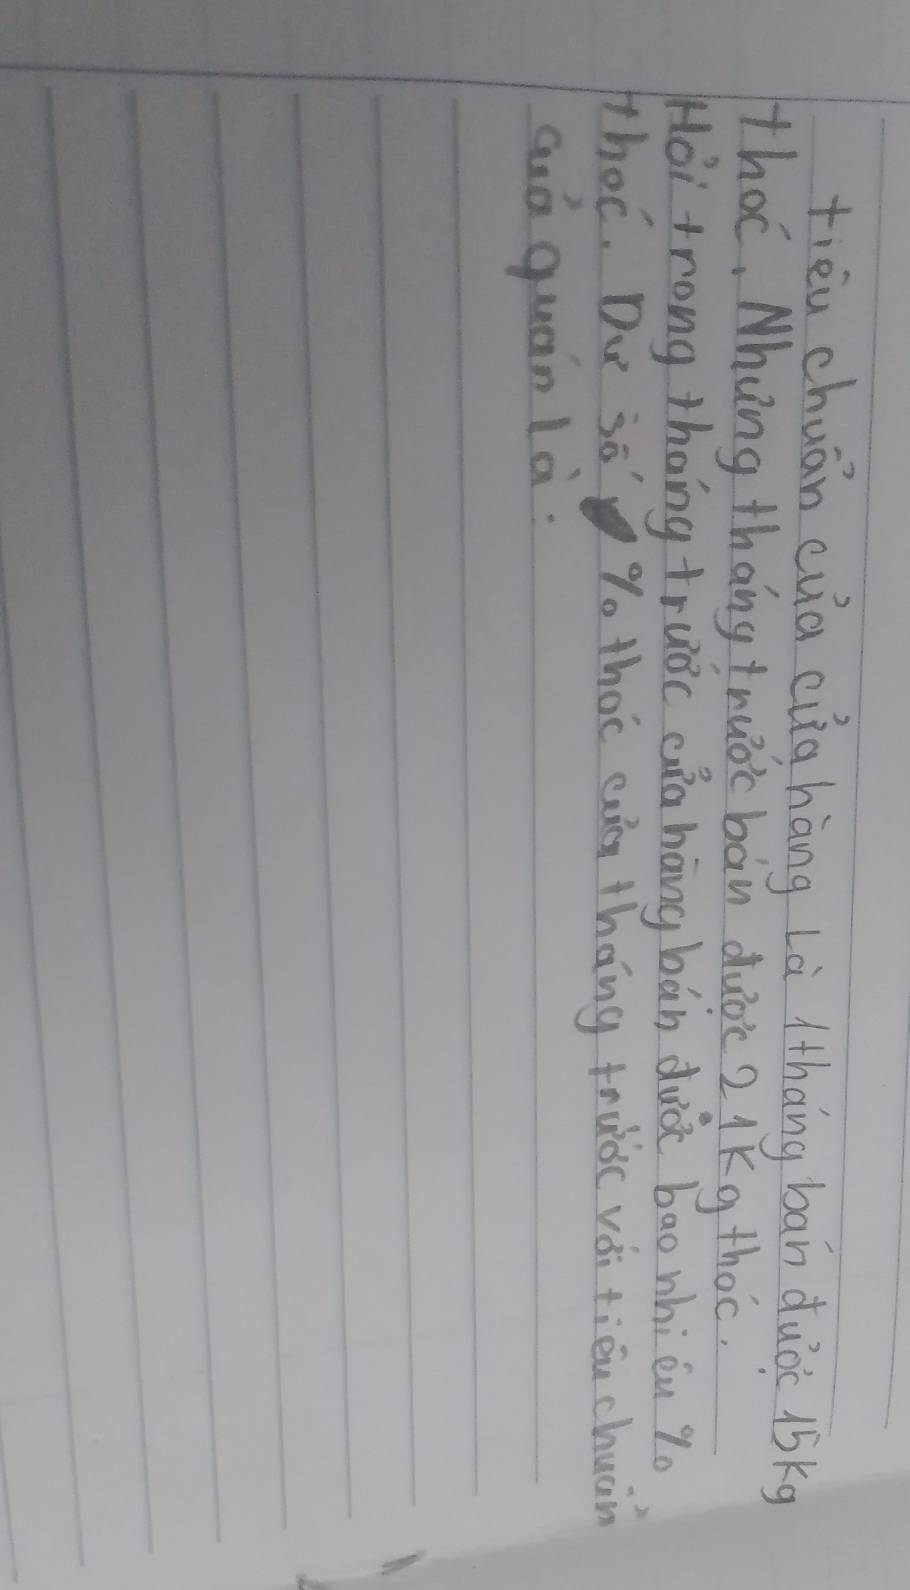 tiêu chuẩn của cửa hàng Là 1 tháng bán được 15kg
thóc, Nhưng tháng trước bán được 21Kg thóc.
Hỏi trong tháng trước cửa hàng bán được bao nhiêu %
thóc. Dư số % thóc của tháng trước với tiêu chuẩn
của quán là: